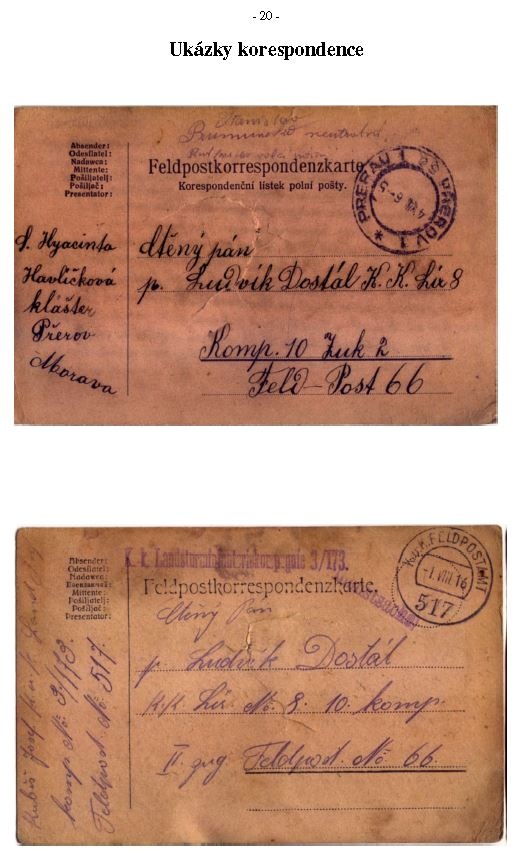 - 20 -
Ukázky korespondence
Absender:
Odesílatel:
Nadawca:
Mittente:
Pošiljatelj:
Pošiljač:
Presentator:
Feldpostkorrespondenzkarte
Korespondenční lístek polní pošty.
PRERAU 1 * PŘEROV 1 *
S. Hyacinta
Havlíčková
klášter
Přerov
Morava
Ctěný pán
p. Ludvík Dostál K. K. Lir 8
Komp. 10 Zuk 2
Feld-Post 66
Absender:
Odesílatel:
Nadawca:
Mittente:
Pošiljatelj:
Pošiljač:
Presentator:
K. k. Landsturm 3/173.
Feldpostkorrespondenzkarte.
K.u.K. FELDPOSTAMT
-1. VIII 16
517
Josef
komp. No. 3/173.
Feldpost No. 517.
Ctěný Pan
p. Ludvík Dostál
K.K. Lir. No. 8. 10. komp.
II. zug Feldpost No. 66